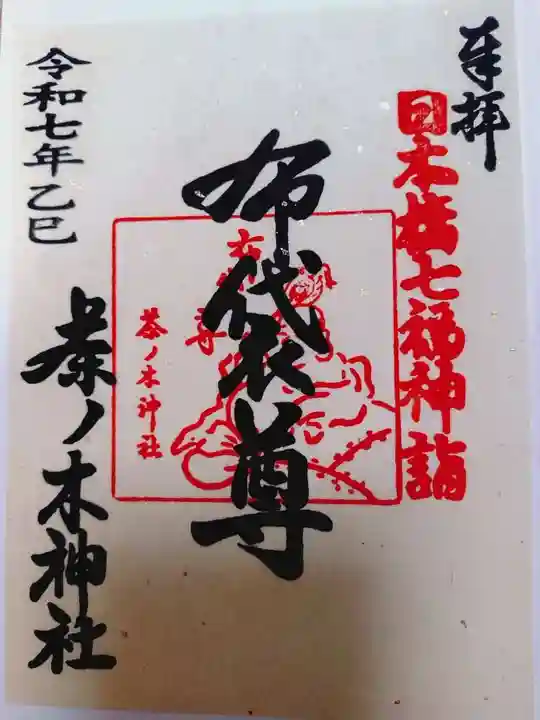 奉拝
日本橋七福神詣
布袋尊
布
尊
茶ノ木神社
令和七年乙巳
茶ノ木神社